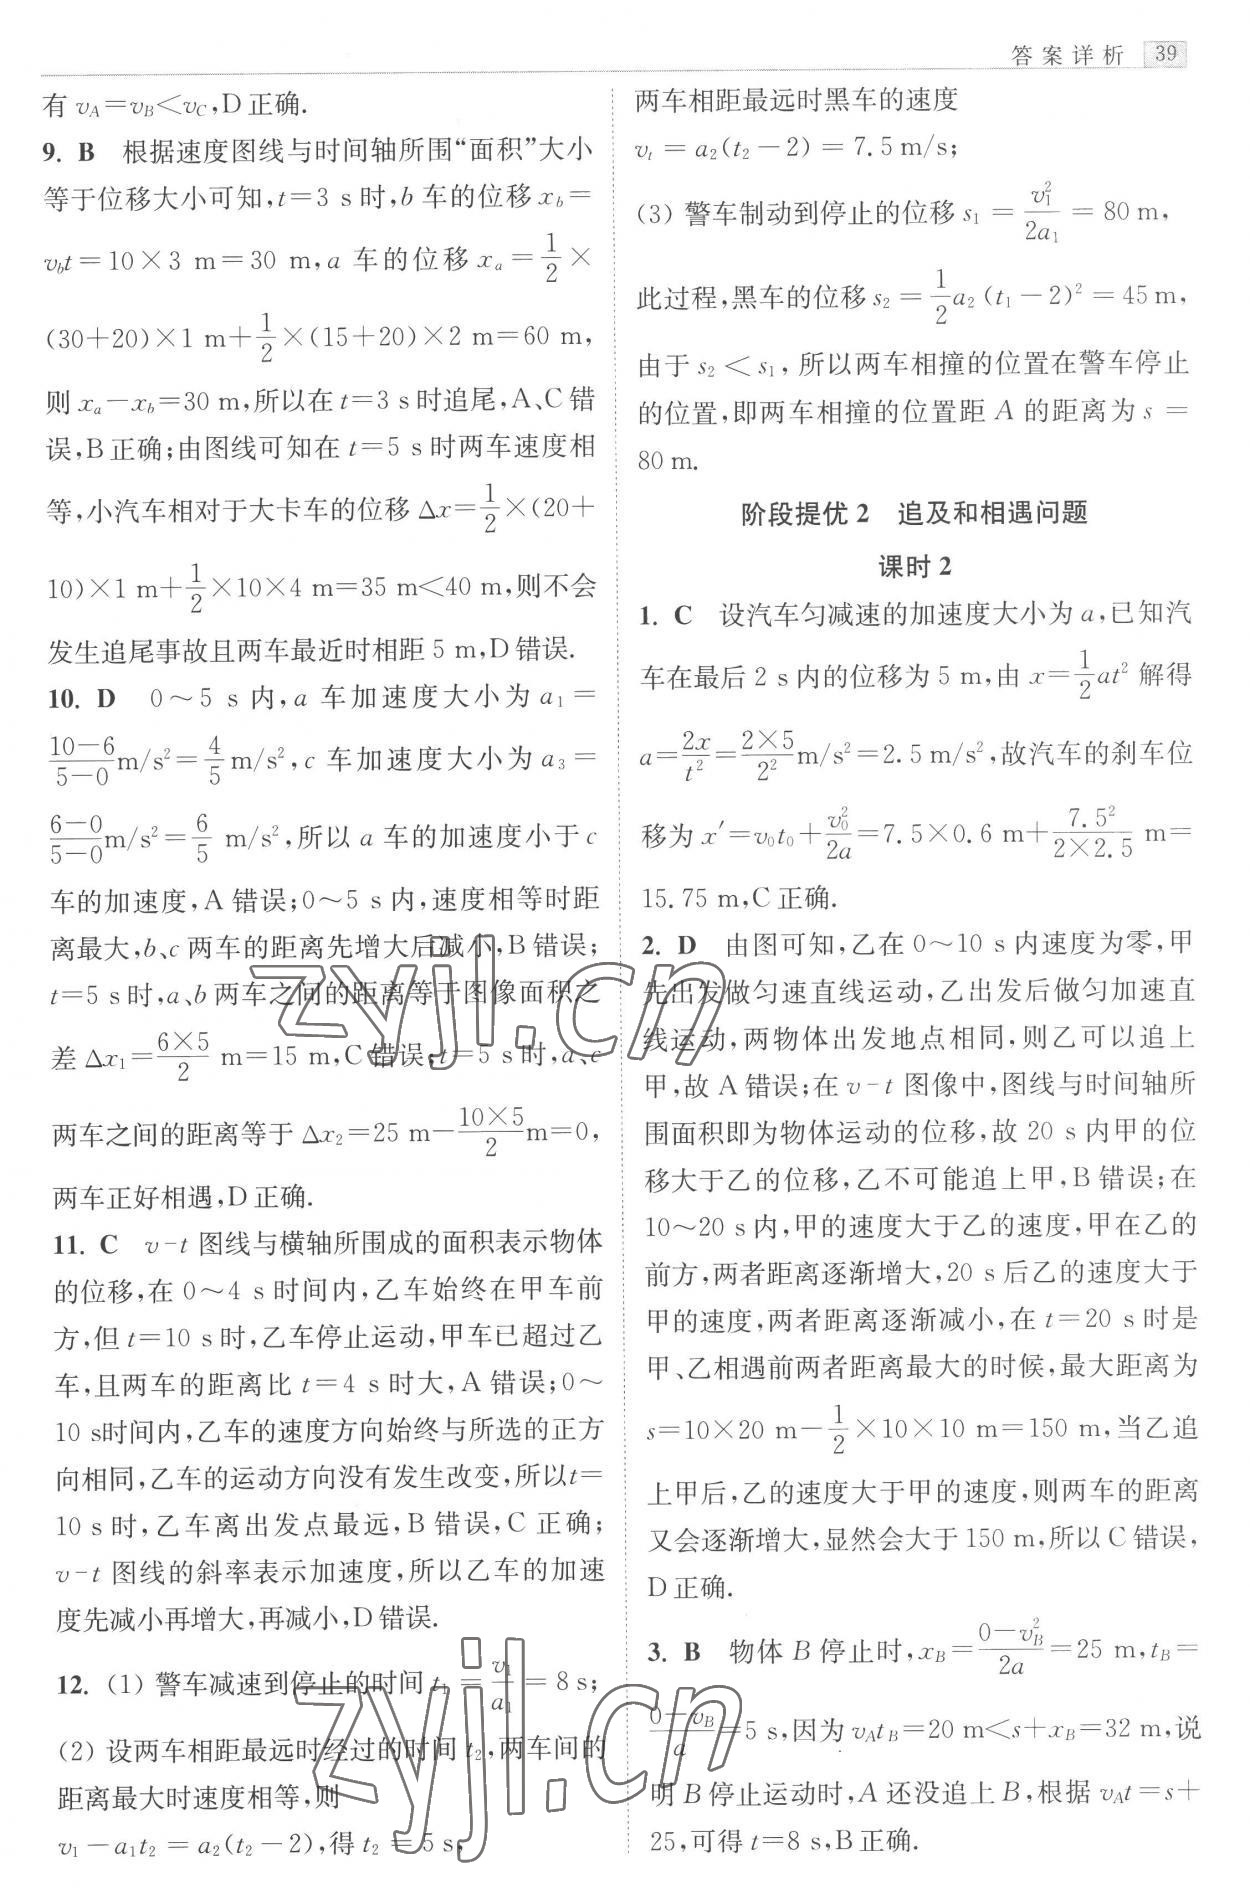 答案详析 39
有 v_A=v_B<v_C,D正确.
9. B 根据速度图线与时间轴所围“面积”大小
等于位移大小可知,t=3 s时,b车的位移x_b=
v_bt=10×3 m=30 m,a车的位移x_a=1/2×
(30+20)×1 m+1/2×(15+20)×2 m=60 m,
则x_a-x_b=30 m,所以在t=3 s时追尾,A、C错
误,B正确;由图线可知在t=5 s时两车速度相
等,小汽车相对于大卡车的位移Δx=1/2×(20+
10)×1 m+1/2×10×4 m=35 m<40 m,则不会
发生追尾事故且两车最近时相距5 m,D错误.
10. D 0~5 s内,a车加速度大小为a₁=
(10-6)/(5-0) m/s²=4/5 m/s²,c车加速度大小为a₃=
(6-0)/(5-0) m/s²=6/5 m/s²,所以a车的加速度小于c
车的加速度,A错误;0~5 s内,速度相等时距
离最大,b、c两车的距离先增大后减小,B错误;
t=5 s时,a、b两车之间的距离等于图像面积之
差Δx₁=(6×5)/2 m=15 m,C错误;t=5 s时,a、c
两车之间的距离等于Δx₂=25 m-(10×5)/2 m=0,
两车正好相遇,D正确.
11. C v-t图线与横轴所围成的面积表示物体
的位移,在0~4 s时间内,乙车始终在甲车前
方,但t=10 s时,乙车停止运动,甲车已超过乙
车,且两车的距离比t=4 s时大,A错误;0~
10 s时间内,乙车的速度方向始终与所选的正方
向相同,乙车的运动方向没有发生改变,所以t=
10 s时,乙车离出发点最远,B错误,C正确;
v-t图线的斜率表示加速度,所以乙车的加速
度先减小再增大,再减小,D错误.
12. (1) 警车减速到停止的时间t₁=v₁/a₁=8 s;
(2) 设两车相距最远时经过的时间t₂,两车间的
距离最大时速度相等,则
v₁-a₁t₂=a₂(t₂-2),得t₂=5 s,
两车相距最远时黑车的速度
v_t=a₂(t₂-2)=7.5 m/s;
(3) 警车制动到停止的位移s₁=v₁²/(2a₁)=80 m,
此过程,黑车的位移s₂=1/2 a₂(t₁-2)²=45 m,
由于s₂<s₁,所以两车相撞的位置在警车停止
的位置,即两车相撞的位置距A的距离为s=
80 m.
阶段提优2 追及和相遇问题
课时2
1. C 设汽车匀减速的加速度大小为a,已知汽
车在最后2 s内的位移为5 m,由x=1/2 at²解得
a=2x/t²=(2×5)/2² m/s²=2.5 m/s²,故汽车的刹车位
移为x′=v₀t₀+v₀²/(2a)=7.5×0.6 m+7.5²/(2×2.5) m=
15.75 m,C正确.
2. D 由图可知,乙在0~10 s内速度为零,甲
先出发做匀速直线运动,乙出发后做匀加速直
线运动,两物体出发地点相同,则乙可以追上
甲,故A错误;在v-t图像中,图线与时间轴所
围面积即为物体运动的位移,故20 s内甲的位
移大于乙的位移,乙不可能追上甲,B错误;在
10~20 s内,甲的速度大于乙的速度,甲在乙的
前方,两者距离逐渐增大,20 s后乙的速度大于
甲的速度,两者距离逐渐减小,在t=20 s时是
甲、乙相遇前两者距离最大的时候,最大距离为
s=10×20 m-1/2×10×10 m=150 m,当乙追
上甲后,乙的速度大于甲的速度,则两车的距离
又会逐渐增大,显然会大于150 m,所以C错误,
D正确.
3. B 物体B停止时,x_B=(0-v_B²)/(2a)=25 m,t_B=
(0-v_B)/a=5 s,因为v_At_B=20 m<s+x_B=32 m,说
明B停止运动时,A还没追上B,根据v_At=s+
25,可得t=8 s,B正确.
zyjl.cn
zyjl.cn